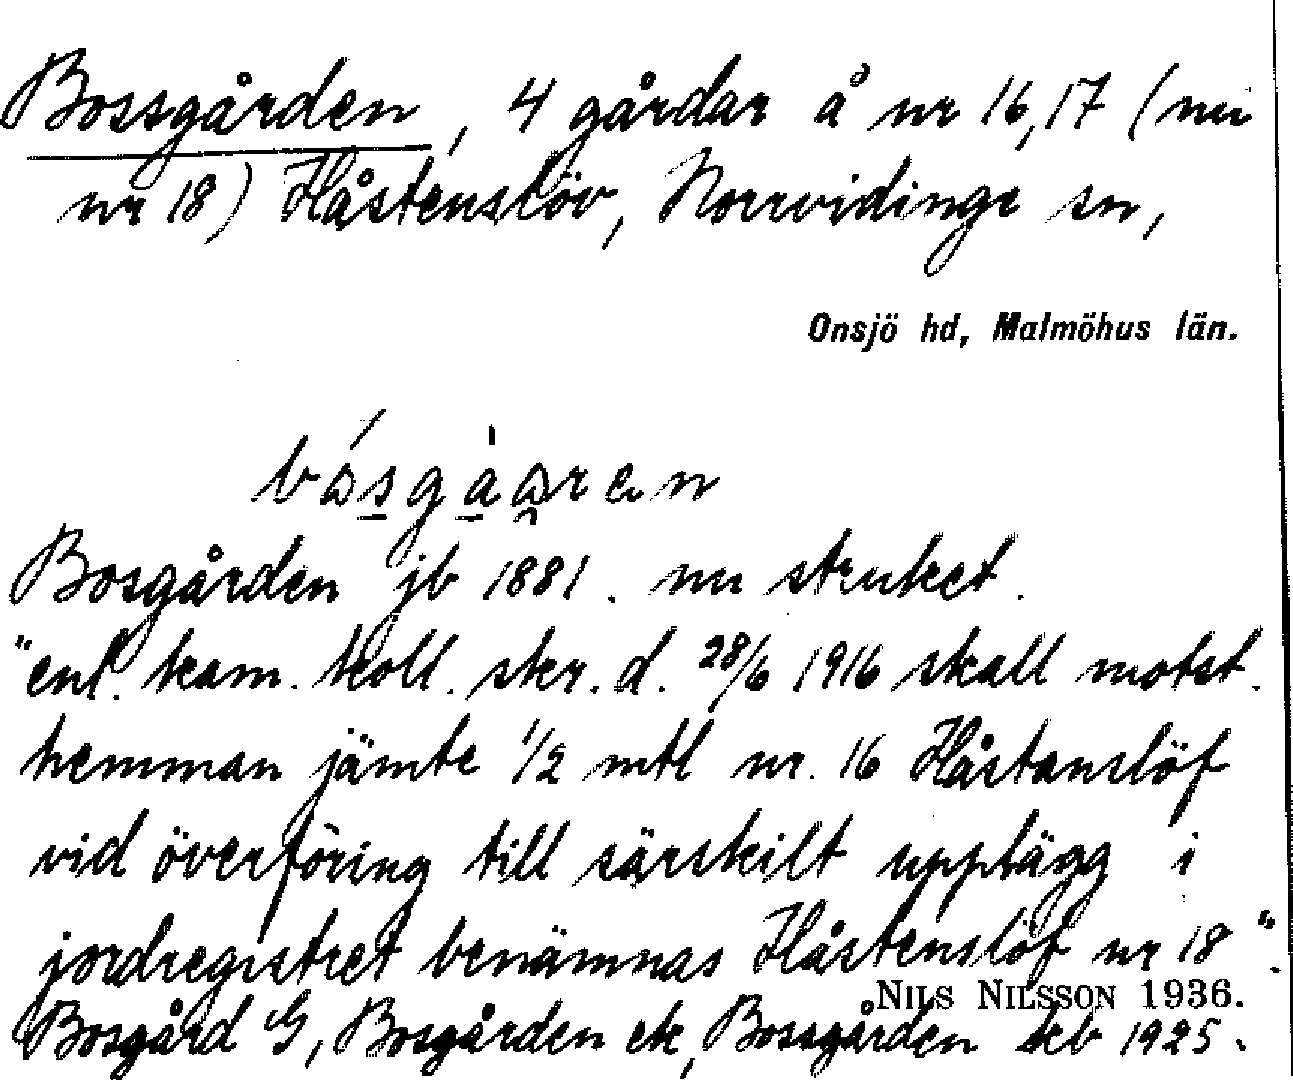 Bossgården, 4 gårdar å nr 16,17 (nu
nr 18) Håstenslöv, Norrvidinge sn,
Onsjö hd, Malmöhus län.
bósgàaren
Bosgården jb 1881. nu struket.
"enl. kam. koll. skr. d. 28/6 1916 skall motst.
hemman jämte 1/2 mtl nr. 16 Håstenslöf
vid överföring till särskilt upplägg i
jordregistret benämnas Håstenslöf nr 18".
NILS NILSSON 1936.
Bosgård G, Bosgården ek, Bossgården skb 1925.